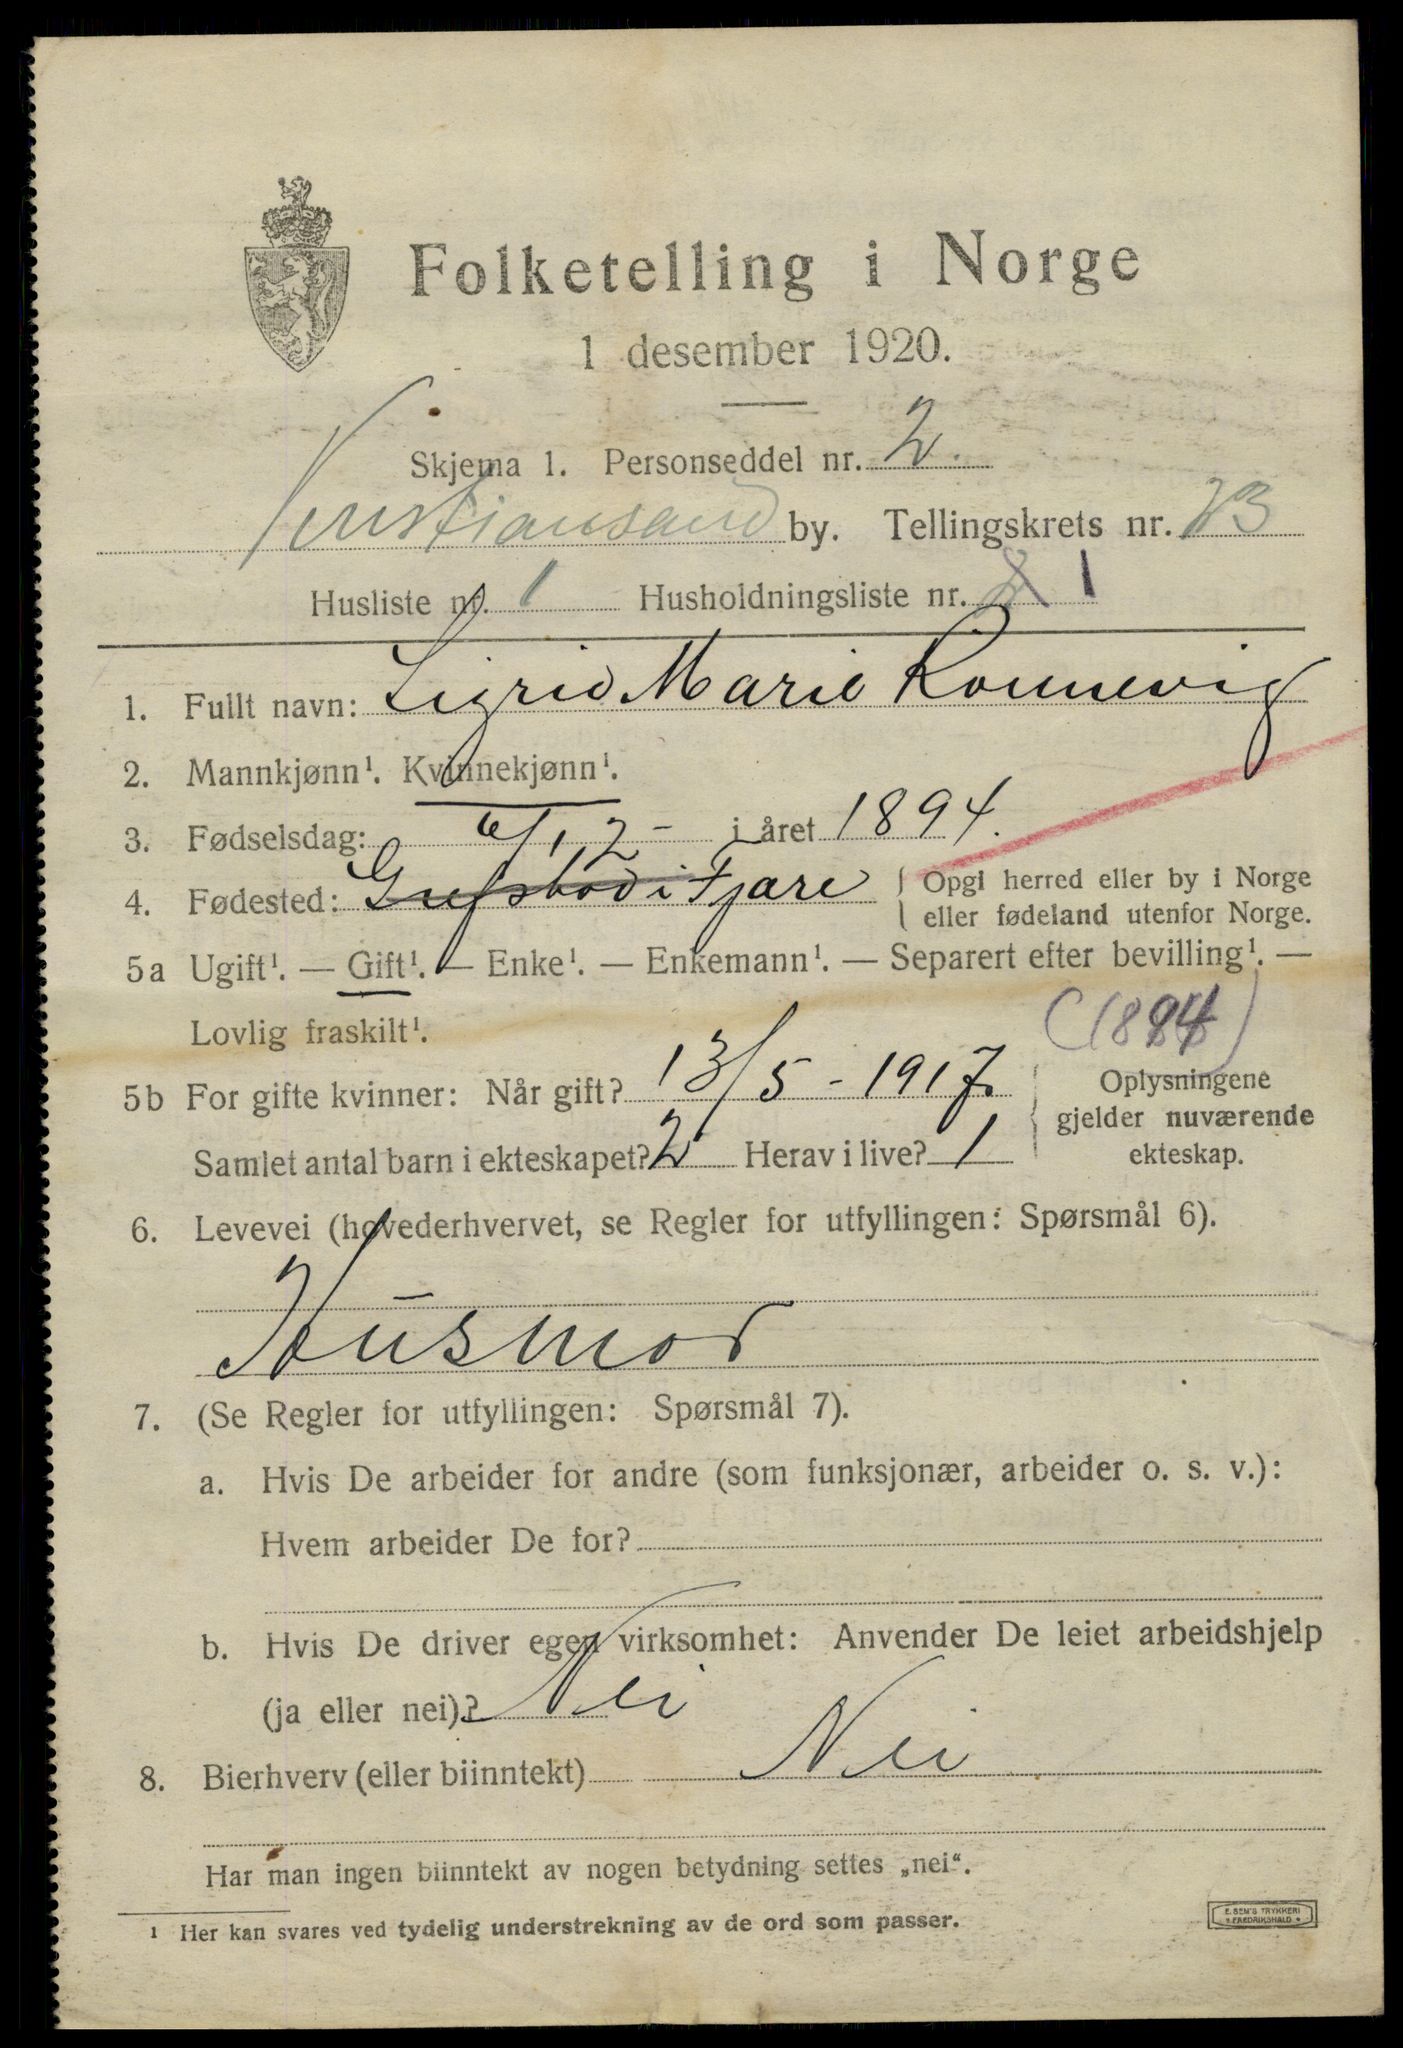 Folketelling i Norge
1 desember 1920.
Skjema 1. Personseddel nr. 2.
Kristiansand by. Tellingskrets nr. 23
Husliste nr. 1 Husholdningsliste nr. 1
1. Fullt navn: Sigrid Marie Rønnevig
2. Mannkjønn¹. Kvinnekjønn¹.
3. Fødselsdag: 6/12- i året 1894.
4. Fødested: i Fjære { Opgi herred eller by i Norge
eller fødeland utenfor Norge.
5a Ugift¹. — Gift¹. — Enke¹. — Enkemann¹. — Separert efter bevilling¹. —
Lovlig fraskilt¹.
(1894)
5b For gifte kvinner: Når gift? 13/5 - 1917. Oplysningene
gjelder nuværende
Samlet antal barn i ekteskapet? 2 Herav i live? 1 ekteskap.
6. Levevei (hovederhvervet, se Regler for utfyllingen: Spørsmål 6).
Husmor
7. (Se Regler for utfyllingen: Spørsmål 7).
a. Hvis De arbeider for andre (som funksjonær, arbeider o. s. v.):
Hvem arbeider De for?
b. Hvis De driver egen virksomhet: Anvender De leiet arbeidshjelp
(ja eller nei)? Nei
8. Bierhverv (eller biinntekt) Nei
Har man ingen biinntekt av nogen betydning settes „nei“.
¹ Her kan svares ved tydelig understrekning av de ord som passer.
E. SEM'S TRYKKERI
FREDRIKSHALD